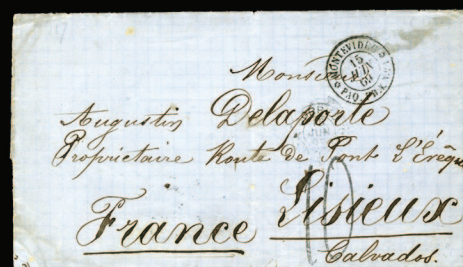 MONTEVIDEO
15
JUIN
69
PAQ. FR. K
Monsieur
Augustin Delaporte
Propriétaire Route de Pont L'Évêque
10
France Lisieux
Calvados.